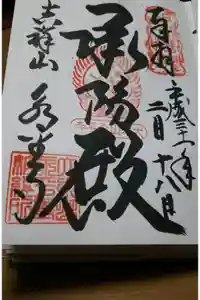 奉拝
平成三十一年
二月十八日
承陽殿
吉祥山
永平寺